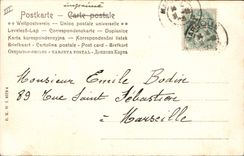 imprimé
Postkarte — Carte postale
Weltpostverein — Union postale universelle
Levelező-Lap — Correspondenzkarte — Dopisnice
Karta korespondencyjna — Korespondenční lístek
Brefkort — Cartolina postale — Post card — Briefkaart
TARJETA POSTAL
Monsieur Emile Bodine
89 Rue Saint Sébastien
à Marseille